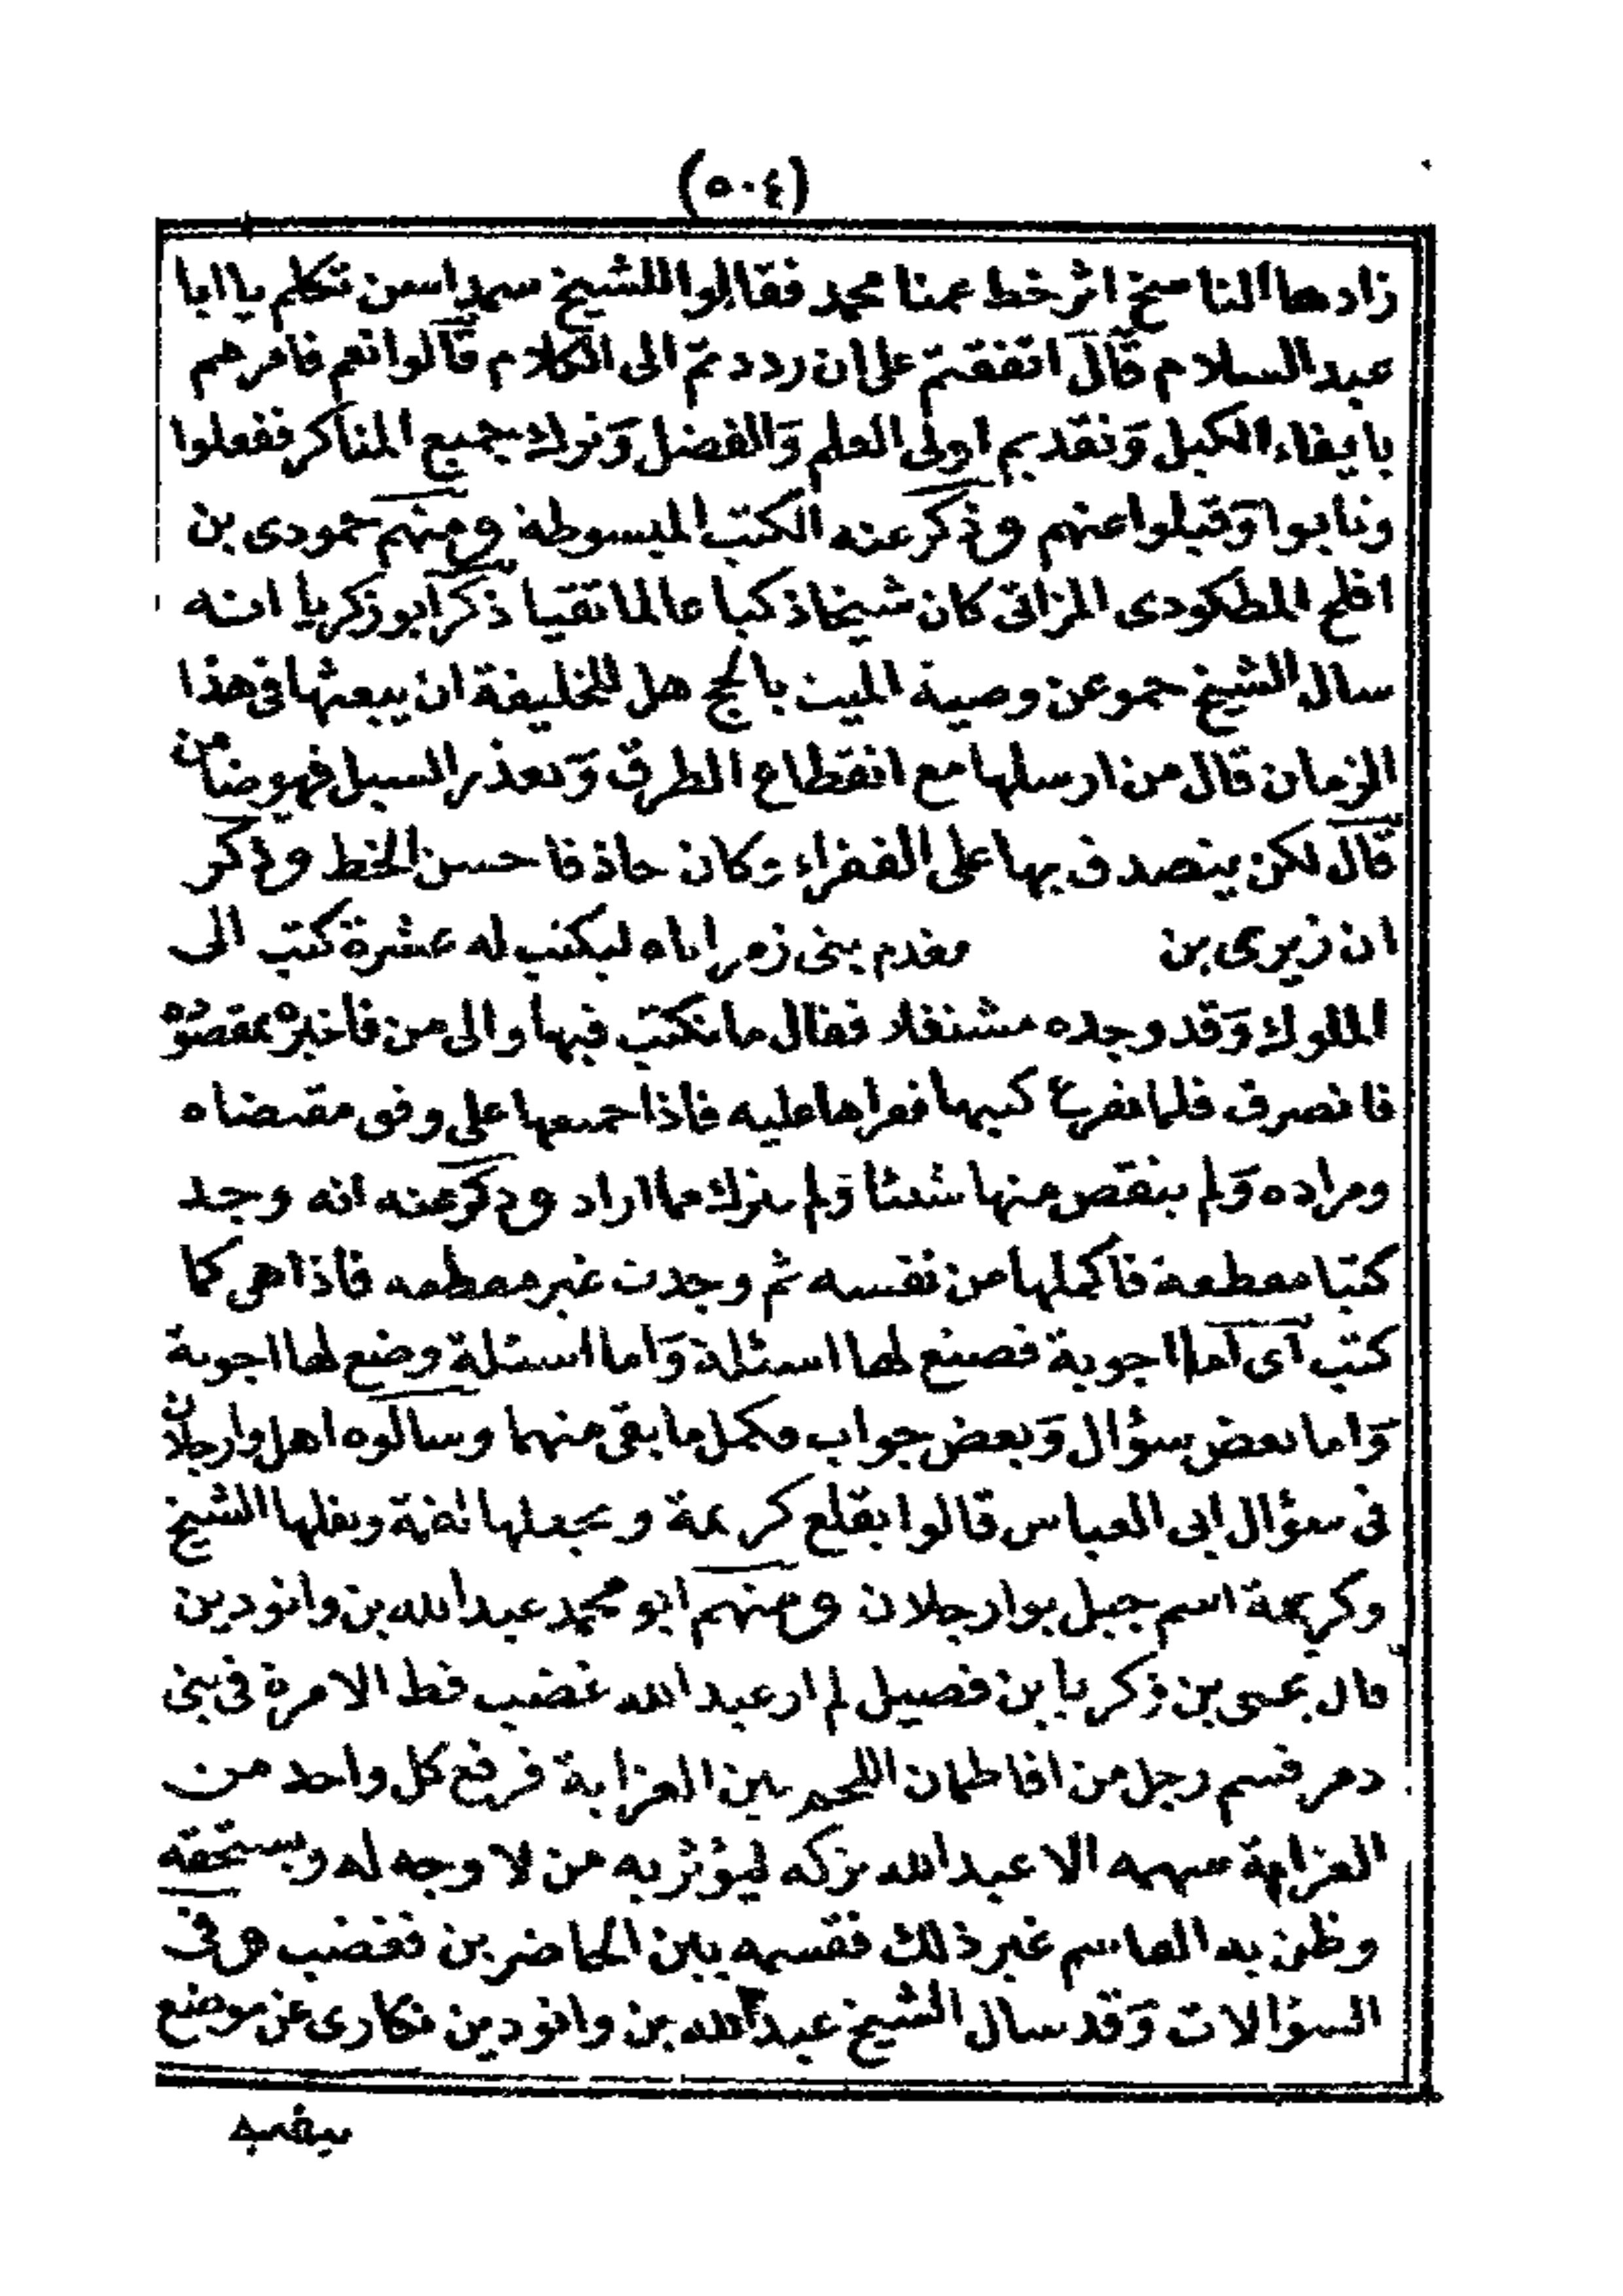 (٥٠٤)
زادها الناسخ اثر خط عمنا محمد فقالوا للشيخ سمداسن تكلم يا ابا
عبد السلام قال اتفقتم على ان رددتم الى الكلام قالوا نعم فامرهم
بايفاء الكيل وتقديم اولى العلم والفضل وترك جميع المناكر ففعلوا
وتابوا وقبلوا عنهم وذكر عنه الكتب المبسوطة ومنهم حمودى بن
افلح المطكودى المزاتى كان شيخا ذكيا عالما تقيا ذكر ابو زكريا انه
سال الشيخ حمو عن وصية الميت بالحج هل للخليفة ان يبعثها فى هذا
الزمان قال من ارسلها مع انقطاع الطرق وتعذر السبل فهو ضامن
قال لكن يتصدق بها على الفقراء وكان حاذقا حسن الخط وذكر
ان زيرى بن مقدم بنى زمر اتاه ليكتب له عشرة كتب الى
الملوك وقد وجده مشتغلا فقال ما نكتب فيها والى من فاخبره بمقصوده
فانصرف فلما تفرغ كتبها فقراها عليه فاذا جميعها على وفق مقتضاه
ومراده ولم ينقص منها شيئا ولم يترك مما اراد وذكر عنه انه وجد
كتبا مقطعة فاكملها من نفسه ثم وجدت غير مقطعه فاذا هى كما
كتب اى اما اجوبة فصنع لها اسئلة واما اسئلة وضع لها اجوبة
واما بعض سؤال وبعض جواب فكمل ما بقى منهما وسالوه اهل وارجلان
فى سؤال ابى العباس قالوا بقلع كريمة ويجعلها ثفة ونقلها الشيخ
وكريمة اسم جبل بوارجلان ومنهم ابو محمد عبد الله بن وانودين
قال يحيى بن زكريا بن فصيل لم ار عبد الله غضب قط الا مرة فى بنى
دمر قسم رجل من افاطمان اللحم بين العزابة فرفع كل واحد من
العزابة سهمه الا عبد الله تركه ليؤثر به من لا وجه له ويستحقه
وظن به القاسم غير ذلك فقسمه بين الحاضرين فغضب وفى
السؤالات وقد سال الشيخ عبد الله بن وانودين نكارى عن موضع